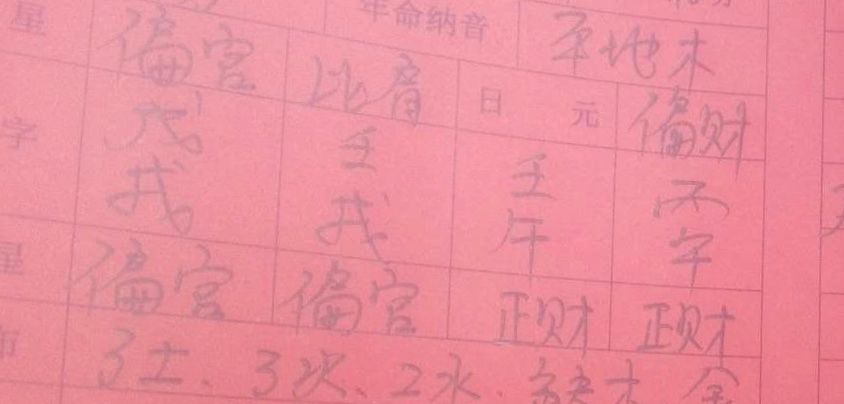 年命纳音 平地木
星 偏官 比肩 日元 偏财
字 戊 壬 壬 丙
戌 戌 午 午
星 偏官 偏官 正财 正财
3土、3火、2水、缺木 金